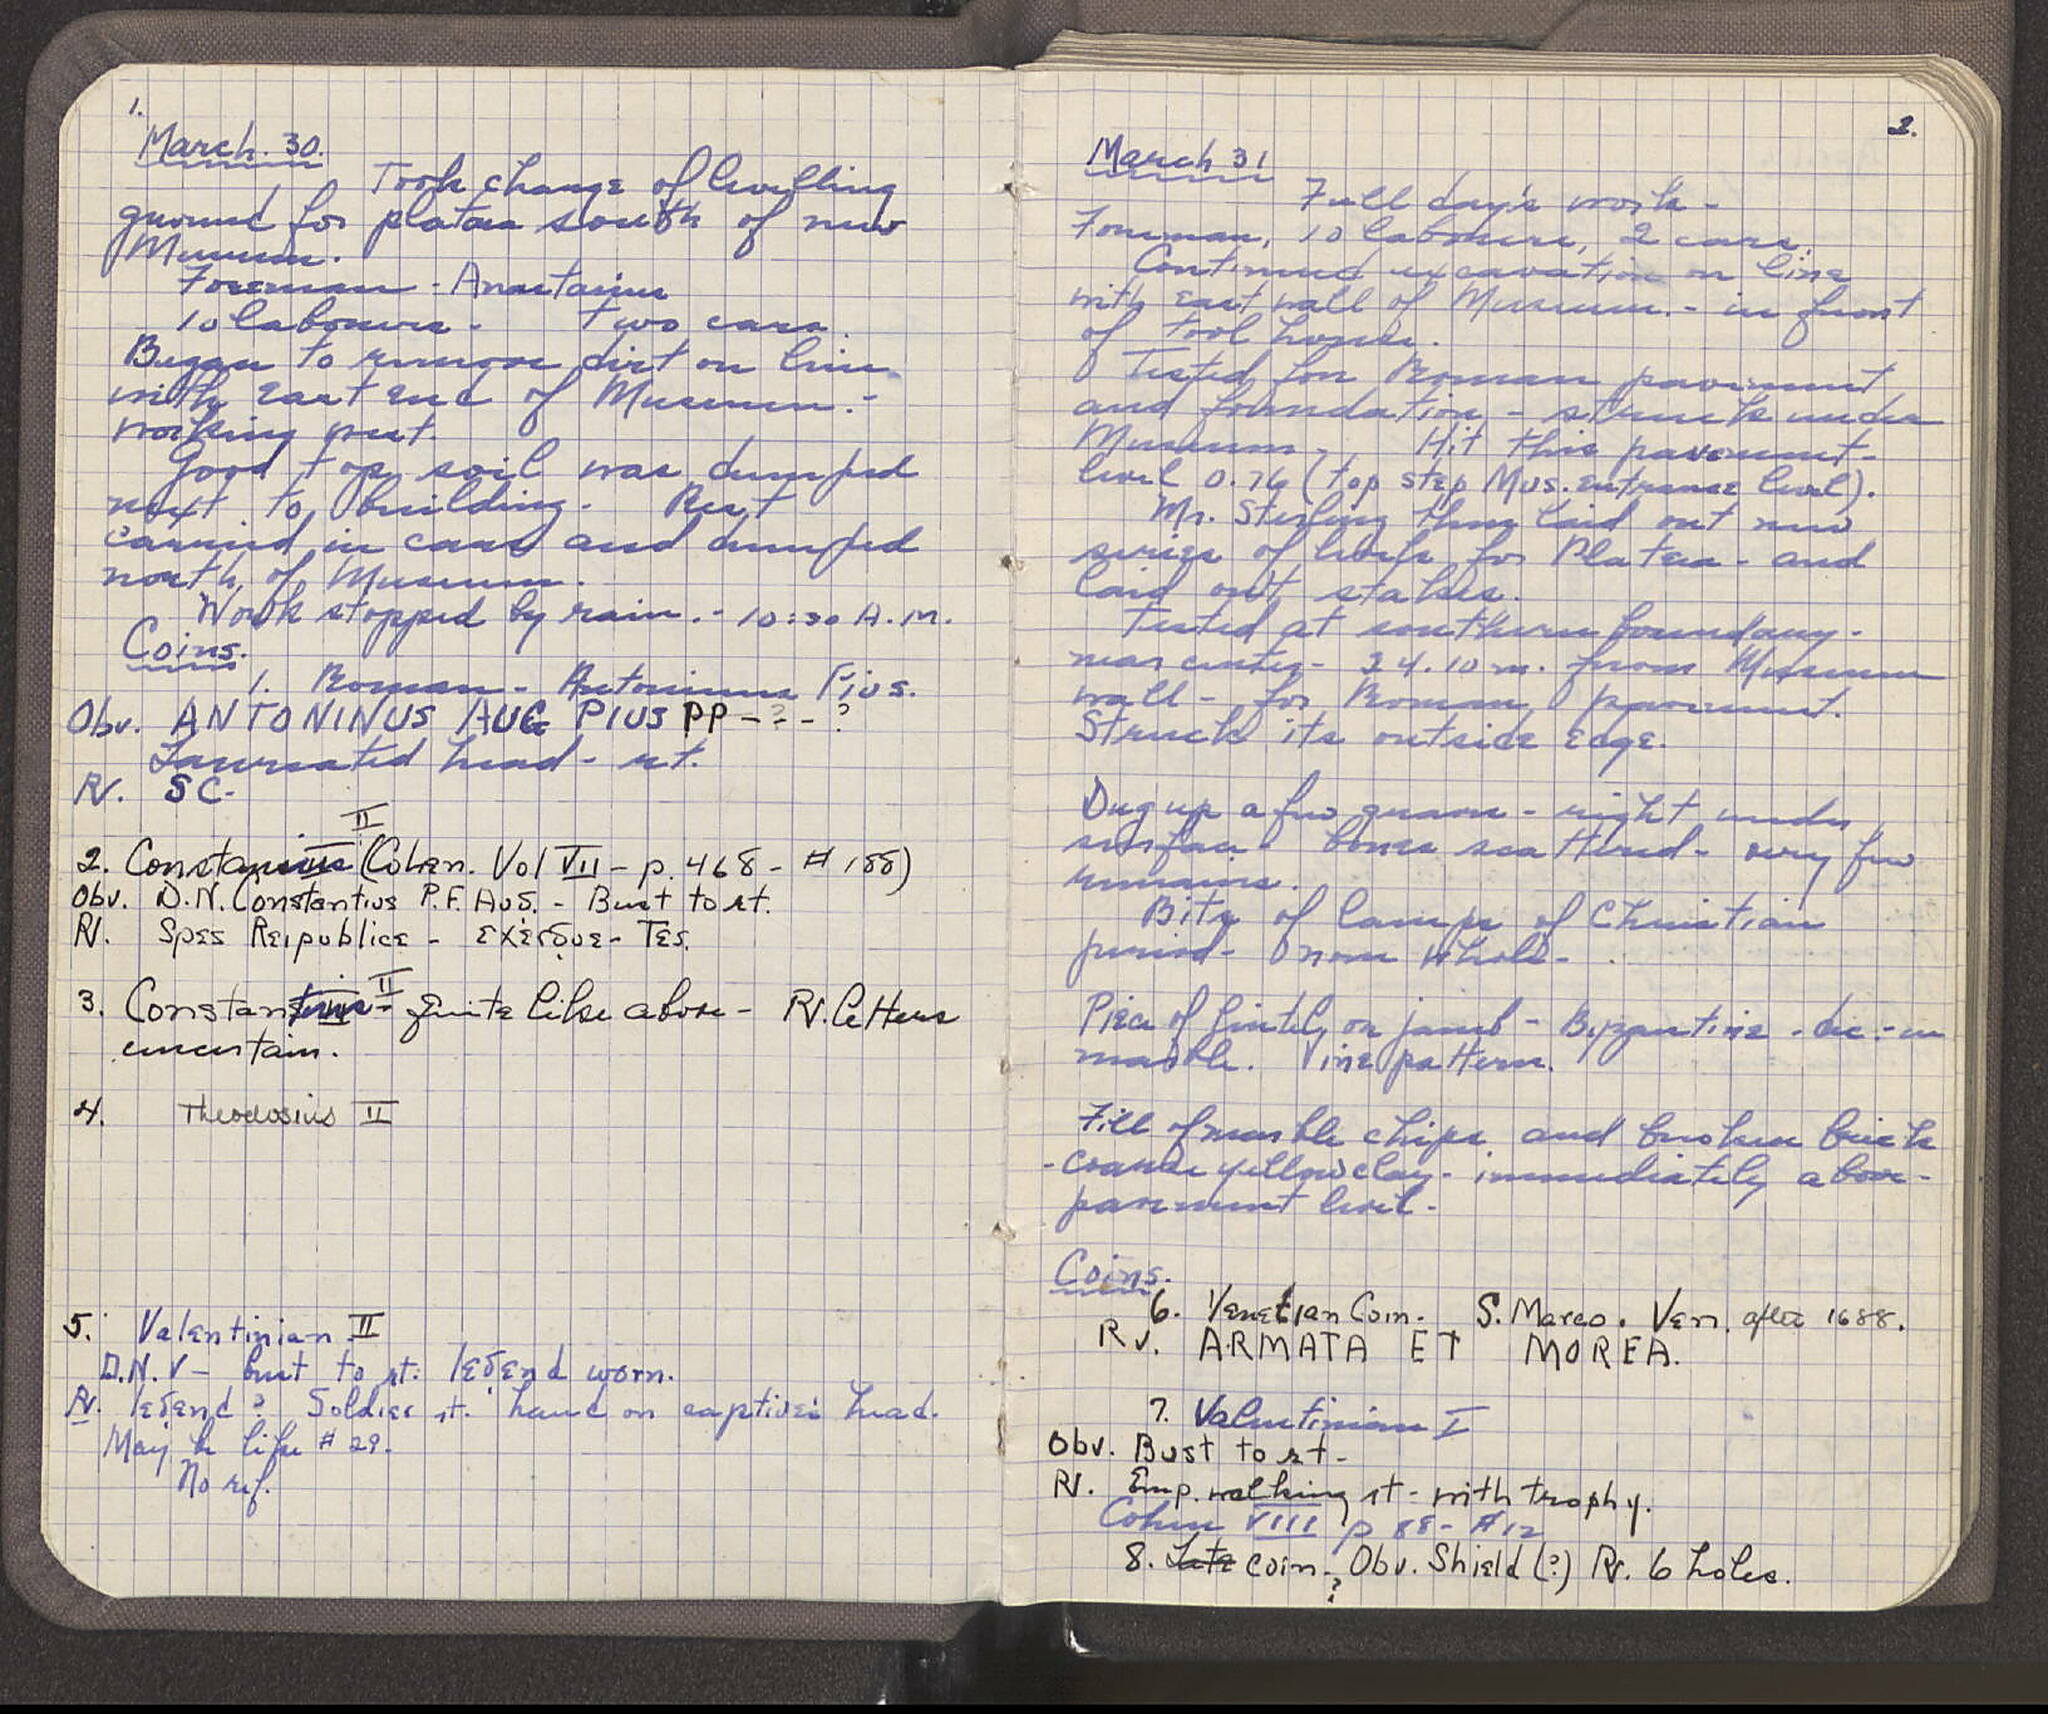 1.
March. 30.
Took charge of levelling
ground for platea south of new
Museum.
Foreman - Anastasius
10 labourers - two cars.
Began to remove dirt on line
with East End of Museum. -
working west.
Good top soil was dumped
next to building. Rest
carried in cars and dumped
north of Museum.
Work stopped by rain. - 10:30 A.M.
Coins.
1. Roman - Antoninus Pius.
Obv. ANTONINUS AUG PIUS PP - ? - ?
Laureated head - rt.
Rv. SC-
2. Constantius II (Cohen. Vol VII - p. 468 - # 188)
Obv. D.N. Constantius P.F. Aug. - Bust to rt.
Rv. Spes Reipublice - exergue - Tes.
3. Constantius II - quite like above - Rv. letters
uncertain.
4. Theodosius II
5. Valentinian II
D.N.V - bust to rt: legend worn.
Rv. legend? Soldier rt. hand on captive's head.
May be like # 29.
No ref.
2.
March 31
Full day's work -
Foreman, 10 labourers, 2 cars.
Continued excavation on line
with east wall of Museum. - in front
of tool house.
Tested for Roman pavement
and foundation - struck under
Museum. Hit this pavement -
level 0.76 (top step Mus. entrance level).
Mr. Sterling then laid out new
series of levels for Platea - and
laid out stakes.
Tested at southern boundary -
near center - 34.10 m. from Museum
wall - for Roman pavement.
Struck its outside edge.
Dug up a few graves - right under
surface - bones scattered - very few
remains.
Bits of lamps of Christian
period - none whole -
Piece of lintel, or jamb - Byzantine - dec. - in
marble. Vine pattern.
Fill of marble chips and broken brick
- coarse yellow clay - immediately above -
pavement level -
Coins.
6. Venetian Coin. S. Marco. Ven. after 1688.
Rv. ARMATA ET MOREA.
7. Valentinian I
Obv. Bust to rt -
Rv. Emp. walking rt - with trophy.
Cohen VIII p 88 - # 12
8. Late coin - ? Obv. Shield (?) Rv. 6 holes.